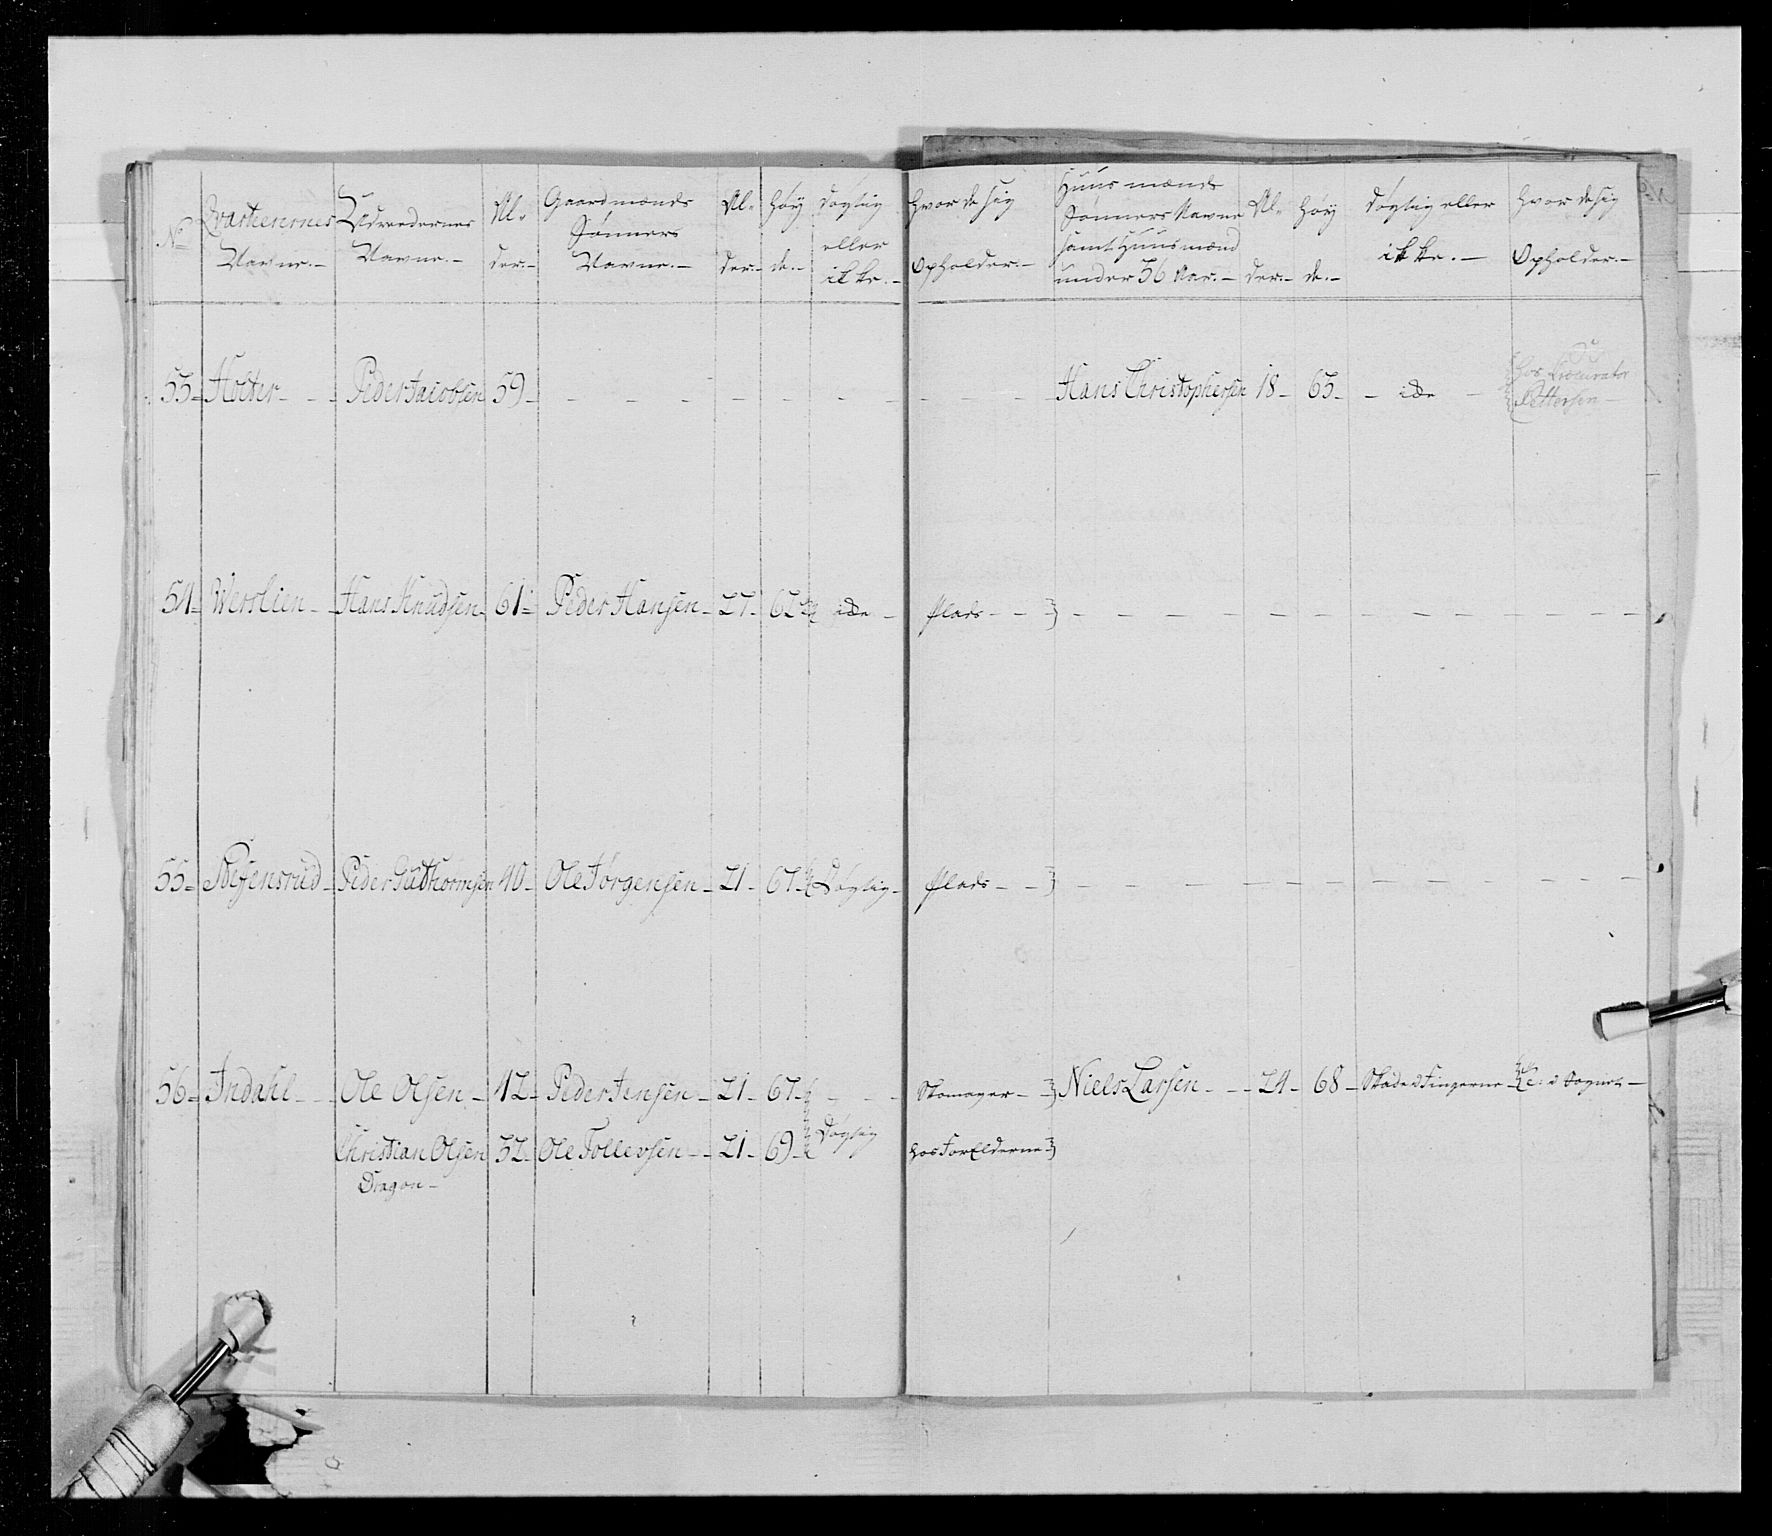 No
Qvarteerernes Navne.-
Udreedernes Navne.-
Al-
der.-
Gaardmænds
Sønners
Navne.-
Al-
der.-
Høy
de.-
døgtig
eller
ikke.-
hvor de sig
Opholder.-
Huusmænds
Sønners Navne
samt Huusmænd
under 36 Aar.-
Al-
der.-
Høy
de.-
døgtig eller
ikke.-
hvor de sig
Opholder.-
53- Holter - - Peder Jacobsen 59 - - - - - - - Hans Christophersen 18 - 65 - - icke - hos Procurator
Pettersen -
54- Werslien - - Hans Knudsen - 61- Peder Hansen - 27- 62 icke - Plads - - - - - - - -
55- Peder Gudthormsen 40 - Ole Jørgensen - 21 - 67 - Døgtig - Plads - - - - - - - -
56- Indahl - - Ole Olsen - 42- Peder Jensen - 21 - 67 - - - Skomager - Niels Larsen - - 24 - 68 - Skade i Fingerne -
Christian Olsen 32- Ole Tollevsen - - 21 - 69 - Døgtig hos Forælderne
Dragon -